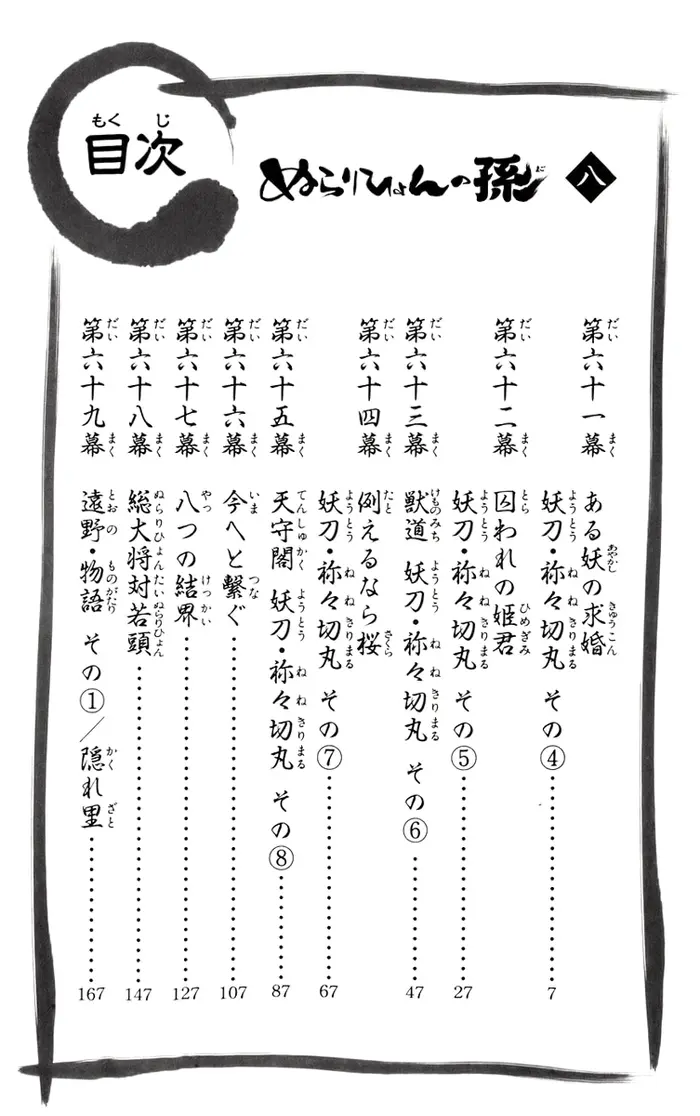 目次
ぬらりひょんの孫
八
第六十一幕 ある妖の求婚
妖刀・祢々切丸 その④……7
第六十二幕 囚われの姫君
妖刀・祢々切丸 その⑤……27
第六十三幕 獣道 妖刀・祢々切丸 その⑥……47
第六十四幕 例えるなら桜
妖刀・祢々切丸 その⑦……67
第六十五幕 天守閣 妖刀・祢々切丸 その⑧……87
第六十六幕 今へと繋ぐ……107
第六十七幕 八つの結界……127
第六十八幕 総大将対若頭……147
第六十九幕 遠野・物語 その①／隠れ里……167